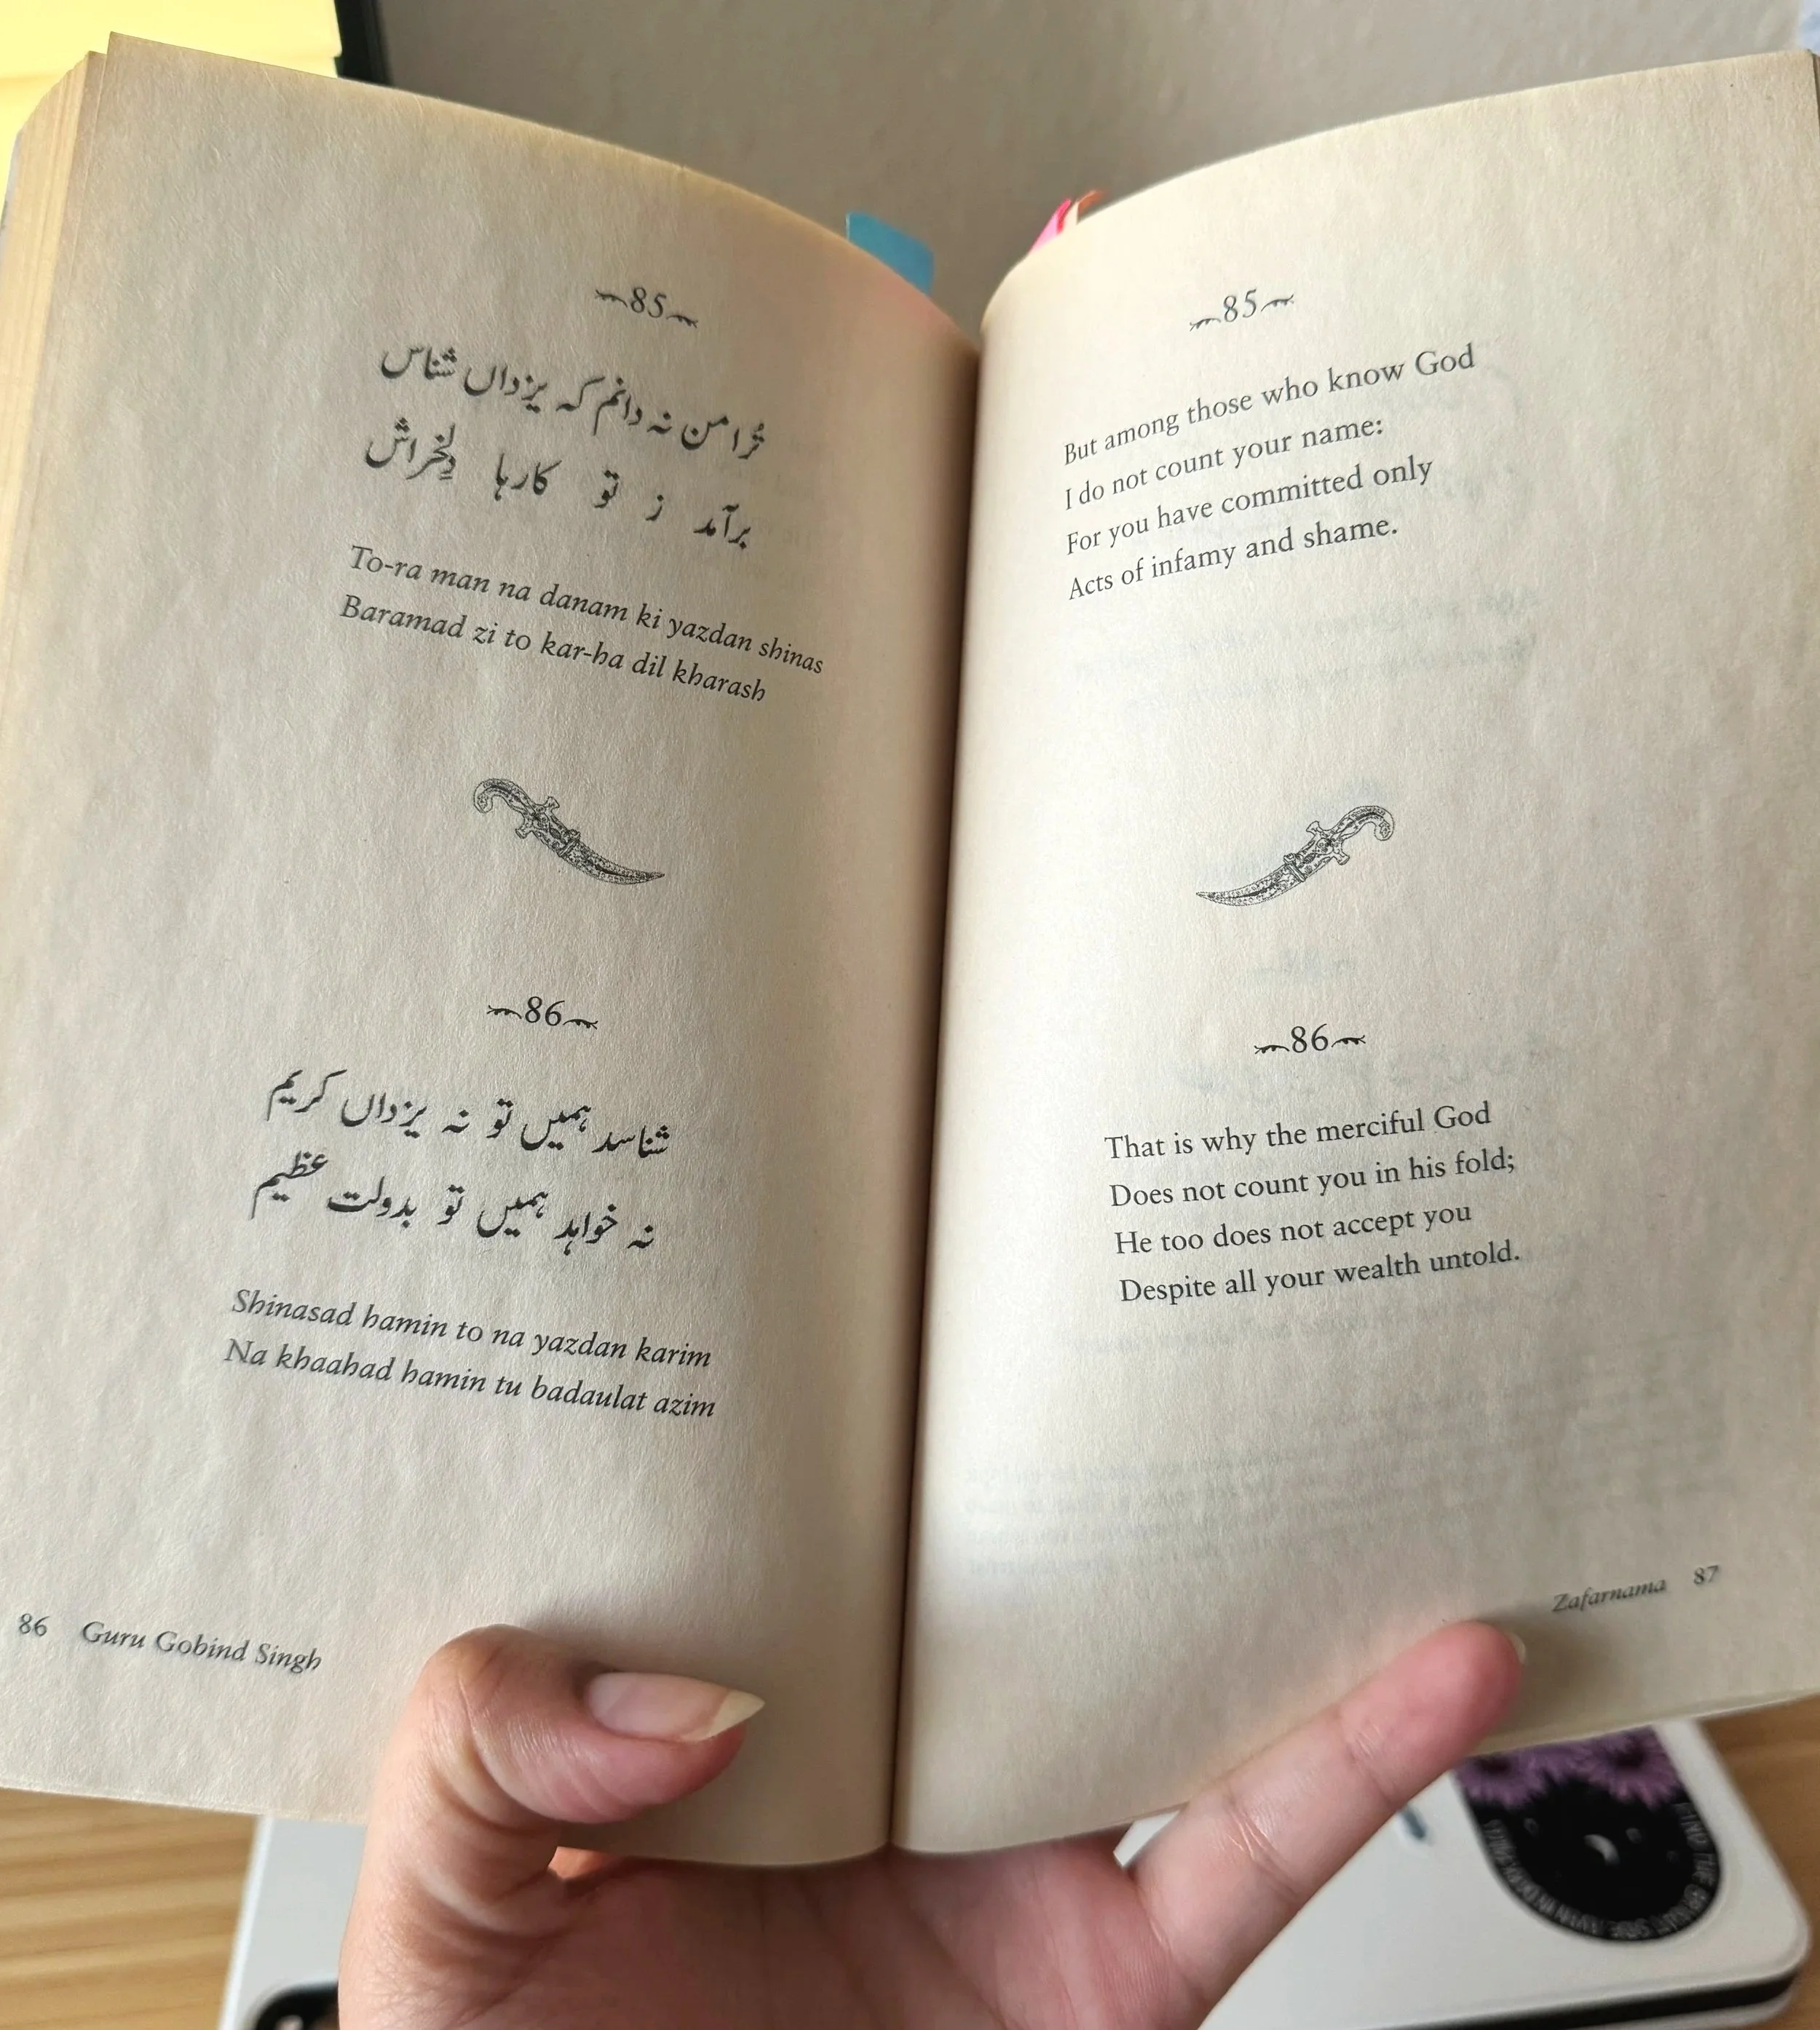 85
تُرا من نہ دانم کہ یزداں شناس
برآمد ز تو کارہا دِلخراش
To-ra man na danam ki yazdan shinas
Baramad zi to kar-ha dil kharash
86
شناسد ہمیں تو نہ یزداں کریم
نہ خواہد ہمیں تو بدولت عظیم
Shinasad hamin to na yazdan karim
Na khaahad hamin tu badaulat azim
86 Guru Gobind Singh
85
But among those who know God
I do not count your name:
For you have committed only
Acts of infamy and shame.
86
That is why the merciful God
Does not count you in his fold;
He too does not accept you
Despite all your wealth untold.
Zafarnama 87